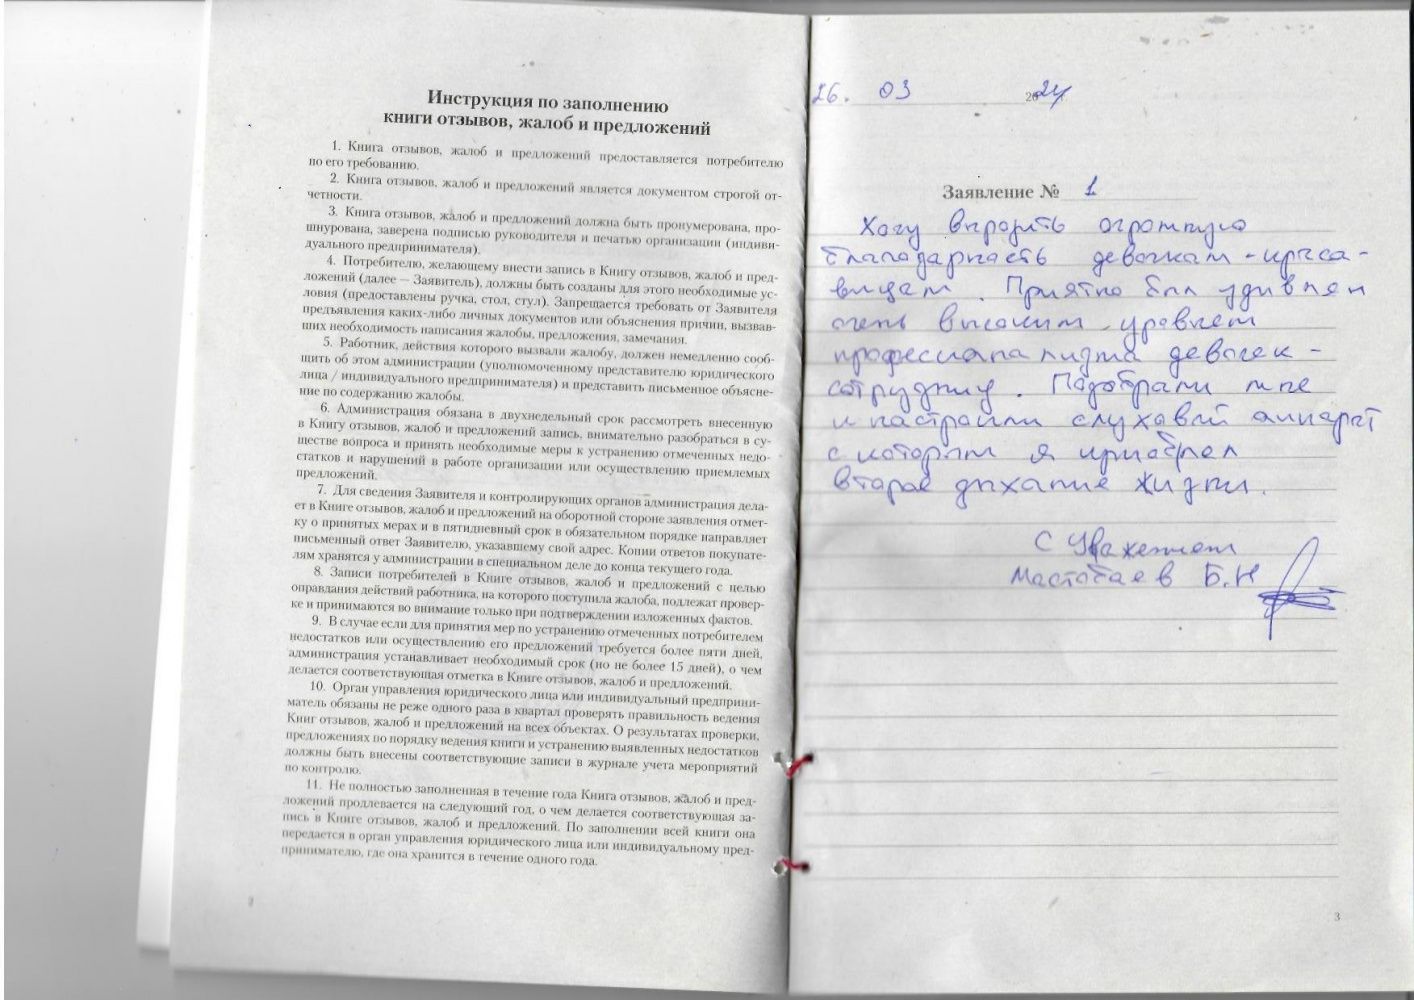 Инструкция по заполнению
книги отзывов, жалоб и предложений
1. Книга отзывов, жалоб и предложений предоставляется потребителю
по его требованию.
2. Книга отзывов, жалоб и предложений является документом строгой от-
четности.
3. Книга отзывов, жалоб и предложений должна быть пронумерована, про-
шнурована, заверена подписью руководителя и печатью организации (индиви-
дуального предпринимателя).
4. Потребителю, желающему внести запись в Книгу отзывов, жалоб и пред-
ложений (далее — Заявитель), должны быть созданы для этого необходимые ус-
ловия (предоставлены ручка, стол, стул). Запрещается требовать от Заявителя
предъявления каких-либо личных документов или объяснения причин, вызвав-
ших необходимость написания жалобы, предложения, замечания.
5. Работник, действия которого вызвали жалобу, должен немедленно сооб-
щить об этом администрации (уполномоченному представителю юридического
лица / индивидуального предпринимателя) и представить письменное объясне-
ние по содержанию жалобы.
6. Администрация обязана в двухнедельный срок рассмотреть внесенную
в Книгу отзывов, жалоб и предложений запись, внимательно разобраться в су-
ществе вопроса и принять необходимые меры к устранению отмеченных недо-
статков и нарушений в работе организации или осуществлению приемлемых
предложений.
7. Для сведения Заявителя и контролирующих органов администрация дела-
ет в Книге отзывов, жалоб и предложений на оборотной стороне заявления отмет-
ку о принятых мерах и в пятидневный срок в обязательном порядке направляет
письменный ответ Заявителю, указавшему свой адрес. Копии ответов покупате-
лям хранятся у администрации в специальном деле до конца текущего года.
8. Записи потребителей в Книге отзывов, жалоб и предложений с целью
оправдания действий работника, на которого поступила жалоба, подлежат провер-
ке и принимаются во внимание только при подтверждении изложенных фактов.
9. В случае если для принятия мер по устранению отмеченных потребителем
недостатков или осуществлению его предложений требуется более пяти дней,
администрация устанавливает необходимый срок (но не более 15 дней), о чем
делается соответствующая отметка в Книге отзывов, жалоб и предложений.
10. Орган управления юридического лица или индивидуальный предприни-
матель обязаны не реже одного раза в квартал проверять правильность ведения
Книг отзывов, жалоб и предложений на всех объектах. О результатах проверки,
предложениях по порядку ведения книги и устранению выявленных недостатков
должны быть внесены соответствующие записи в журнале учета мероприятий
по контролю.
11. Не полностью заполненная в течение года Книга отзывов, жалоб и пред-
ложений продлевается на следующий год, о чем делается соответствующая за-
пись в Книге отзывов, жалоб и предложений. По заполнении всей книги она
передается в орган управления юридического лица или индивидуальному пред-
принимателю, где она хранится в течение одного года.
26. 03 2024
Заявление № 1
Хочу выразить огромную
благодарность девочкам - краса-
вицам. Приятно был удивлен
очень высоким уровнем
профессионализма девочек -
сотрудниц. Подобрали мне
и настроили слуховой аппарат
с которым я приобрел
второе дыхание жизни.
С Уважением
Мастобаев Б.Н
3